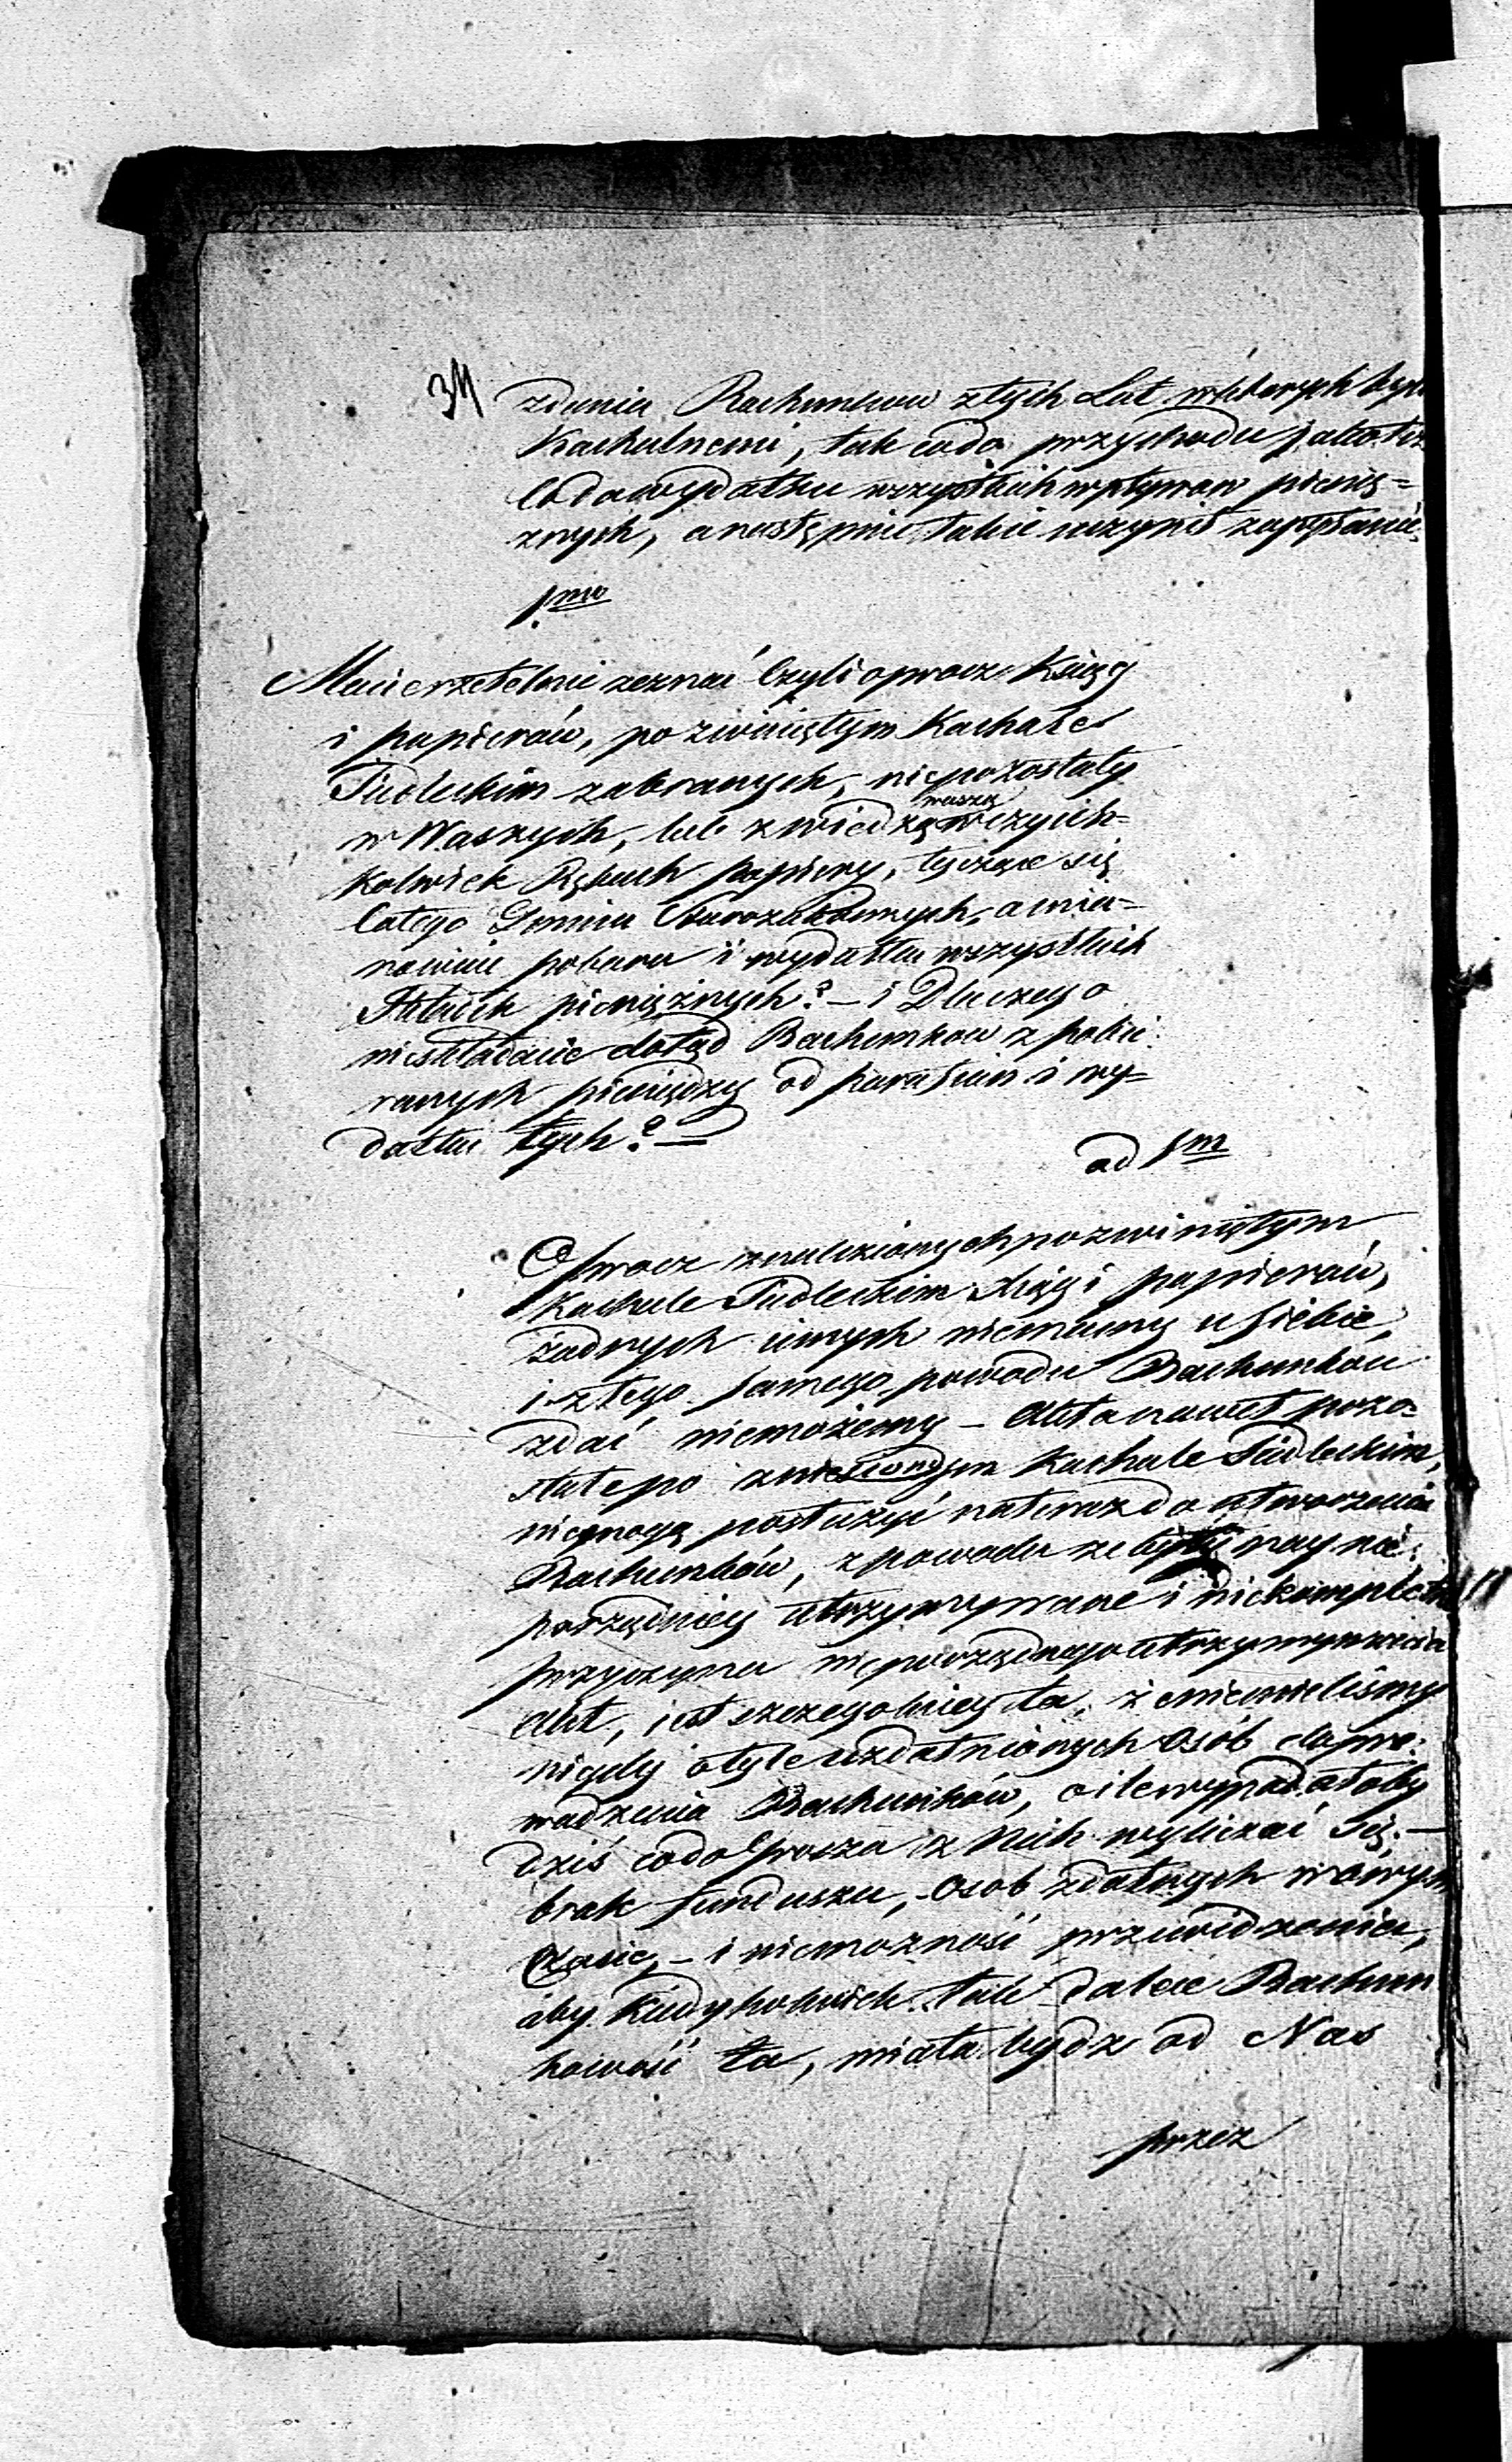 34
zdania Rachunkow z tych Lat wktorych byli
Kachalnemi, tak codo przychodu jako też
Codowydatku wszystkich wpływow pienię=
znych, a następnie takie uczynił zapytanie.
1mo
Macie rzetelnie zeznać Czyli oprocz Ksiąg
i papierów, po zwiniętym Kachale
Siedleckim zabranych, niepozostały
w Waszych, lub z wiedzą waszą w czyich=
Kolwiek Rękach papiery, tyczące się
Całego Gminu Starozakonnych, a mia=
nowicie poboru i wydatku wszystkich
Składek pieniężnych? – i Dlaczego
nieskładacie dotąd Rachunkow z pobie:
ranych pieniędzy od parafian i wy=
datku tych? —
ad 1m
Oprocz znalezionych po zwiniętym
Kachale Siedleckim Ksiąg i papierów,
żadnych innych niemamy u siebie,
i z tego samego powodu Rachunkow
zdać niemożemy – Akta nawet pozo=
stałe po zniesionym Kachale Siedleckim,
niemogą posłużyć nateraz do utworzenia
Rachunków, z powodu ze były nay nie:
porządniey utrzymywane i niekompletne
przyczyna nieporządnego utrzymywania
Akt, jest szczegolniey ta, ż eniemieliśmy
nigdy otyle uzdatnionych Osób dopro:
wadzenia Rachunków, oile wypadałoby
dziś codo Grosza z Nich wyliczać Się. —
brak funduszu, – Osob zdatnych w owym
Czasie, – i niemożność przewidzenia,
aby Kiedykolwiek tak dalece Rachun
kowość ta, miała bydz od Nas
przez